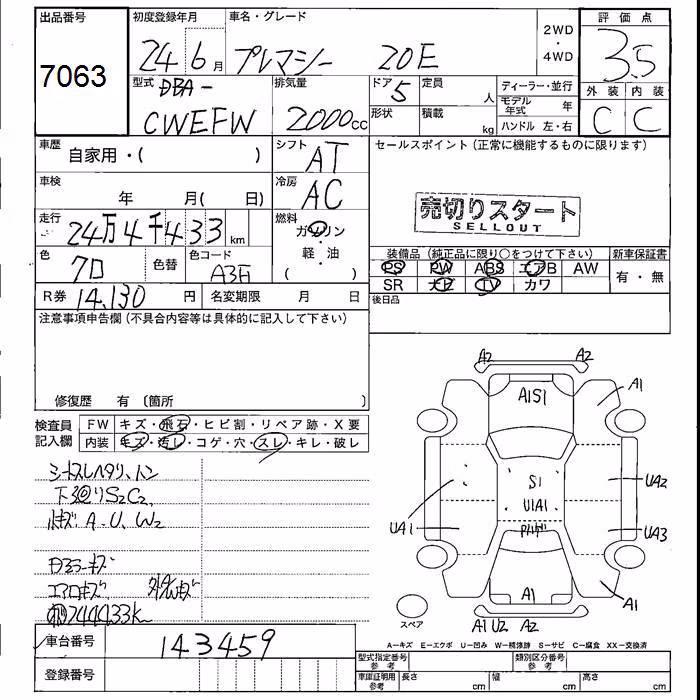 出品番号
7063
初度登録年月
24 6月
車名・グレード
プレマシー 20E
2WD
・
4WD
評価点
3.5
外装 内装
C C
型式 DBA-
CWEFW
排気量
2000cc
ドア 5
形状
定員 人
積載 kg
ディーラー・並行
モデル年式 年
ハンドル 左・右
車歴
自家用・( )
シフト
AT
セールスポイント(正常に機能するものに限ります)
売切りスタート
SELLOUT
車検 年 月( 日)
冷房
AC
走行
24万4千433km
燃料
ガソリン
・
軽・油
( )
色
クロ
色替
色コード
R券 14,130円
名変期限 月 日
装備品(純正品に限り○をつけて下さい)
新車保証書
PS PW ABS エアB AW
有・無
SR ナビ TV カワ
後日品
注意事項申告欄(不具合内容等は具体的に記入して下さい)
修復歴 有〔箇所
検査員
記入欄
FW キズ・飛石・ヒビ割・リペア跡・X要
内装 キズ・汚レ・コゲ・穴・スレ・キレ・破レ
シートスレヘタリ、ハン
下廻りS2C2,
小キズ A.U.W2
ドアミラーキズ
エアロキズ
244433k
A2 A2
A1S1
A1
S1
U1A1
UA2
UA1
UA3
A1
A1
A1 U2 A2
スペア
A−キズ E−エクボ U−凹み W−補修跡 S−サビ C−腐食 XX−交換済
車台番号
143459
登録番号
型式指定番号
参考
類別区分番号
参考
車庫証明用
参考
長さ cm
幅 cm
高さ cm